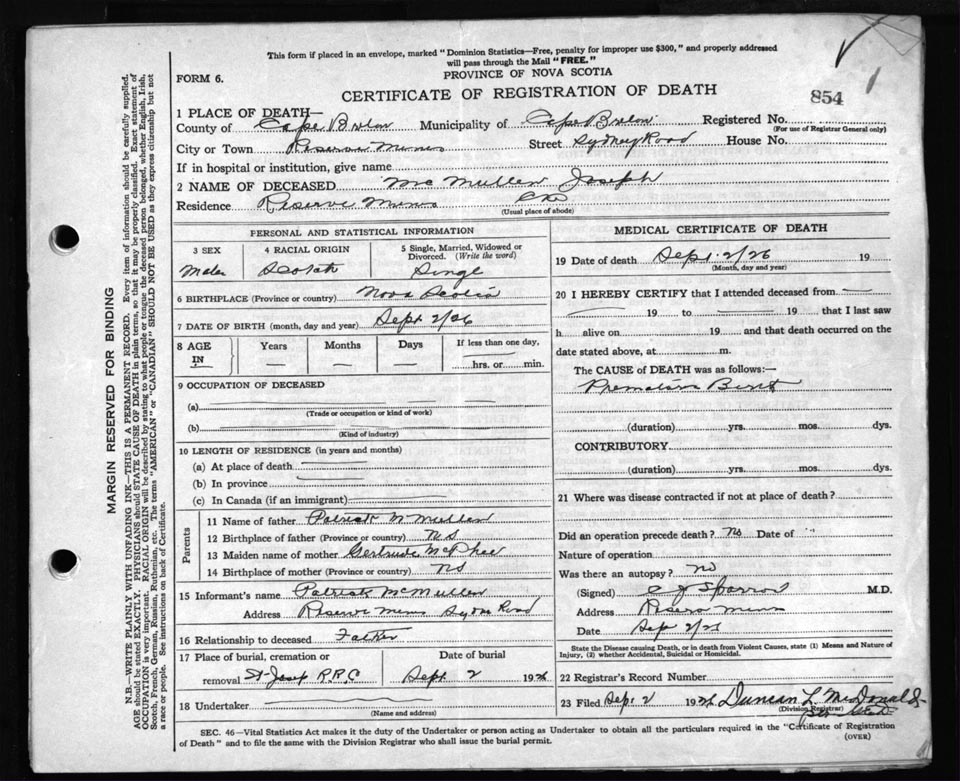 This form if placed in an envelope, marked "Dominion Statistics—Free, penalty for improper use $300," and properly addressed
will pass through the Mail "FREE."
FORM 6.
PROVINCE OF NOVA SCOTIA
CERTIFICATE OF REGISTRATION OF DEATH
854
1 PLACE OF DEATH—
County of Cape Breton Municipality of Cape Breton Registered No.
(For use of Registrar General only)
City or Town Reserve Mines Street Sydney Road House No.
If in hospital or institution, give name
2 NAME OF DECEASED Mc Mullen Joseph
Residence Reserve Mines CB
(Usual place of abode)
PERSONAL AND STATISTICAL INFORMATION
3 SEX
Male
4 RACIAL ORIGIN
Scotch
5 Single, Married, Widowed or
Divorced. (Write the word)
Singl
6 BIRTHPLACE (Province or country) Nova Scotia
7 DATE OF BIRTH (month, day and year) Sept 2/26
8 AGE IN
Years
—
Months
—
Days
—
If less than one day,
hrs. or min.
9 OCCUPATION OF DECEASED
(a)
(Trade or occupation or kind of work)
(b)
(Kind of industry)
10 LENGTH OF RESIDENCE (in years and months)
(a) At place of death
(b) In province
(c) In Canada (if an immigrant)
Parents
11 Name of father Patrick McMullen
12 Birthplace of father (Province or country) NS
13 Maiden name of mother Gertrude McPhee
14 Birthplace of mother (Province or country) NS
15 Informant's name Patrick McMullen
Address Reserve Mines Sydney Road
16 Relationship to deceased Father
17 Place of burial, cremation or
removal St Josep R.R.C
Date of burial
Sept. 2 1926
18 Undertaker
(Name and address)
MEDICAL CERTIFICATE OF DEATH
19 Date of death Sept. 2/26 19
(Month, day and year)
20 I HEREBY CERTIFY that I attended deceased from —
19 to 19 that I last saw
h alive on 19 and that death occurred on the
date stated above, at m.
The CAUSE of DEATH was as follows:—
Premature Birth
(duration) yrs. mos. dys.
CONTRIBUTORY
(duration) yrs. mos. dys.
21 Where was disease contracted if not at place of death?
Did an operation precede death? No Date of "
Nature of operation
Was there an autopsy? no
(Signed) Sparrow M.D.
Address Reserve Mines
Date Sep 2/26
State the Disease causing Death, or in death from Violent Causes, state (1) Means and Nature of
Injury, (2) whether Accidental, Suicidal or Homicidal.
22 Registrar's Record Number
23 Filed Sept 2 1926 Duncan L. McDonald
(Division Registrar)
SEC. 46—Vital Statistics Act makes it the duty of the Undertaker or person acting as Undertaker to obtain all the particulars required in the "Certificate of Registration
of Death" and to file the same with the Division Registrar who shall issue the burial permit.
(OVER)
MARGIN RESERVED FOR BINDING
N.B.—WRITE PLAINLY WITH UNFADING INK—THIS IS A PERMANENT RECORD. Every item of information should be carefully supplied.
AGE should be stated EXACTLY. PHYSICIANS should STATE CAUSE OF DEATH in plain terms, so that it may be properly classified. Exact statement of
OCCUPATION is very important. RACIAL ORIGIN will be described by stating to what people or tongue the deceased person belonged, whether English, Irish,
Scotch, French, German, Russian, Ruthenian, etc. The terms "AMERICAN" or "CANADIAN" SHOULD NOT BE USED as they express citizenship but not
a race or people. See instructions on back of Certificate.